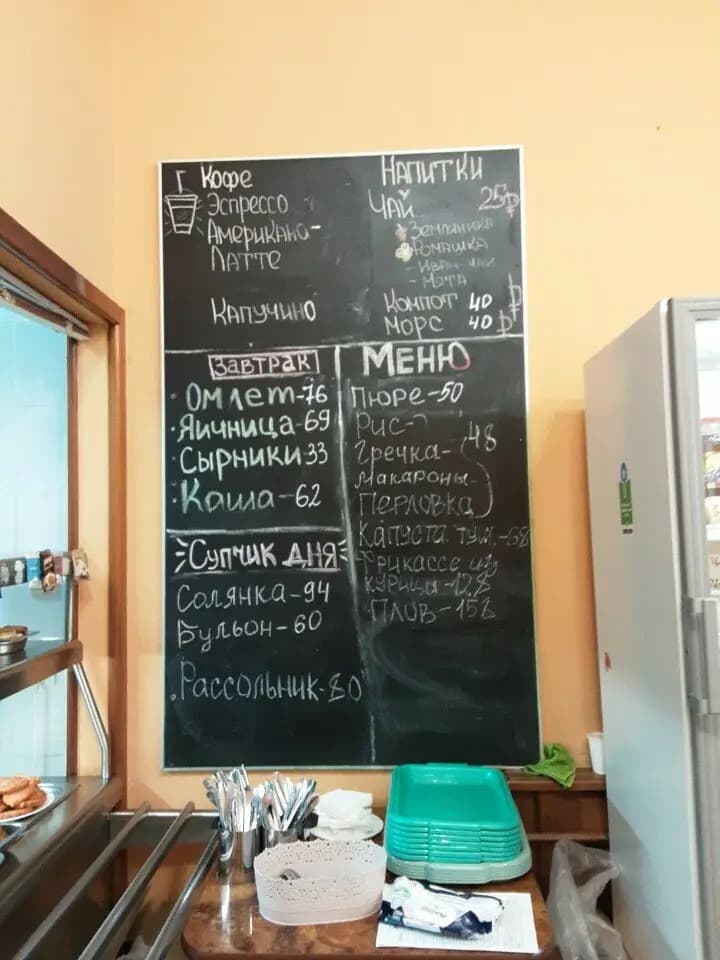 Кофе
Эспрессо
Американо-
Латте
Капучино
Напитки
Чай 25₽
- Земляника
- Ромашка
- Иван чай
- Мята
Компот 40 ₽
Морс 40 ₽
Завтрак
· Омлет-76
· Яичница-69
· Сырники 33
· Каша-62
Супчик дня
Солянка-94
Бульон-60
· Рассольник-80
Меню
Пюре-50
Рис-
Гречка- 48
Макароны-
Перловка
Капуста туш.-68
Фрикассе из
курицы-128
· Плов-158